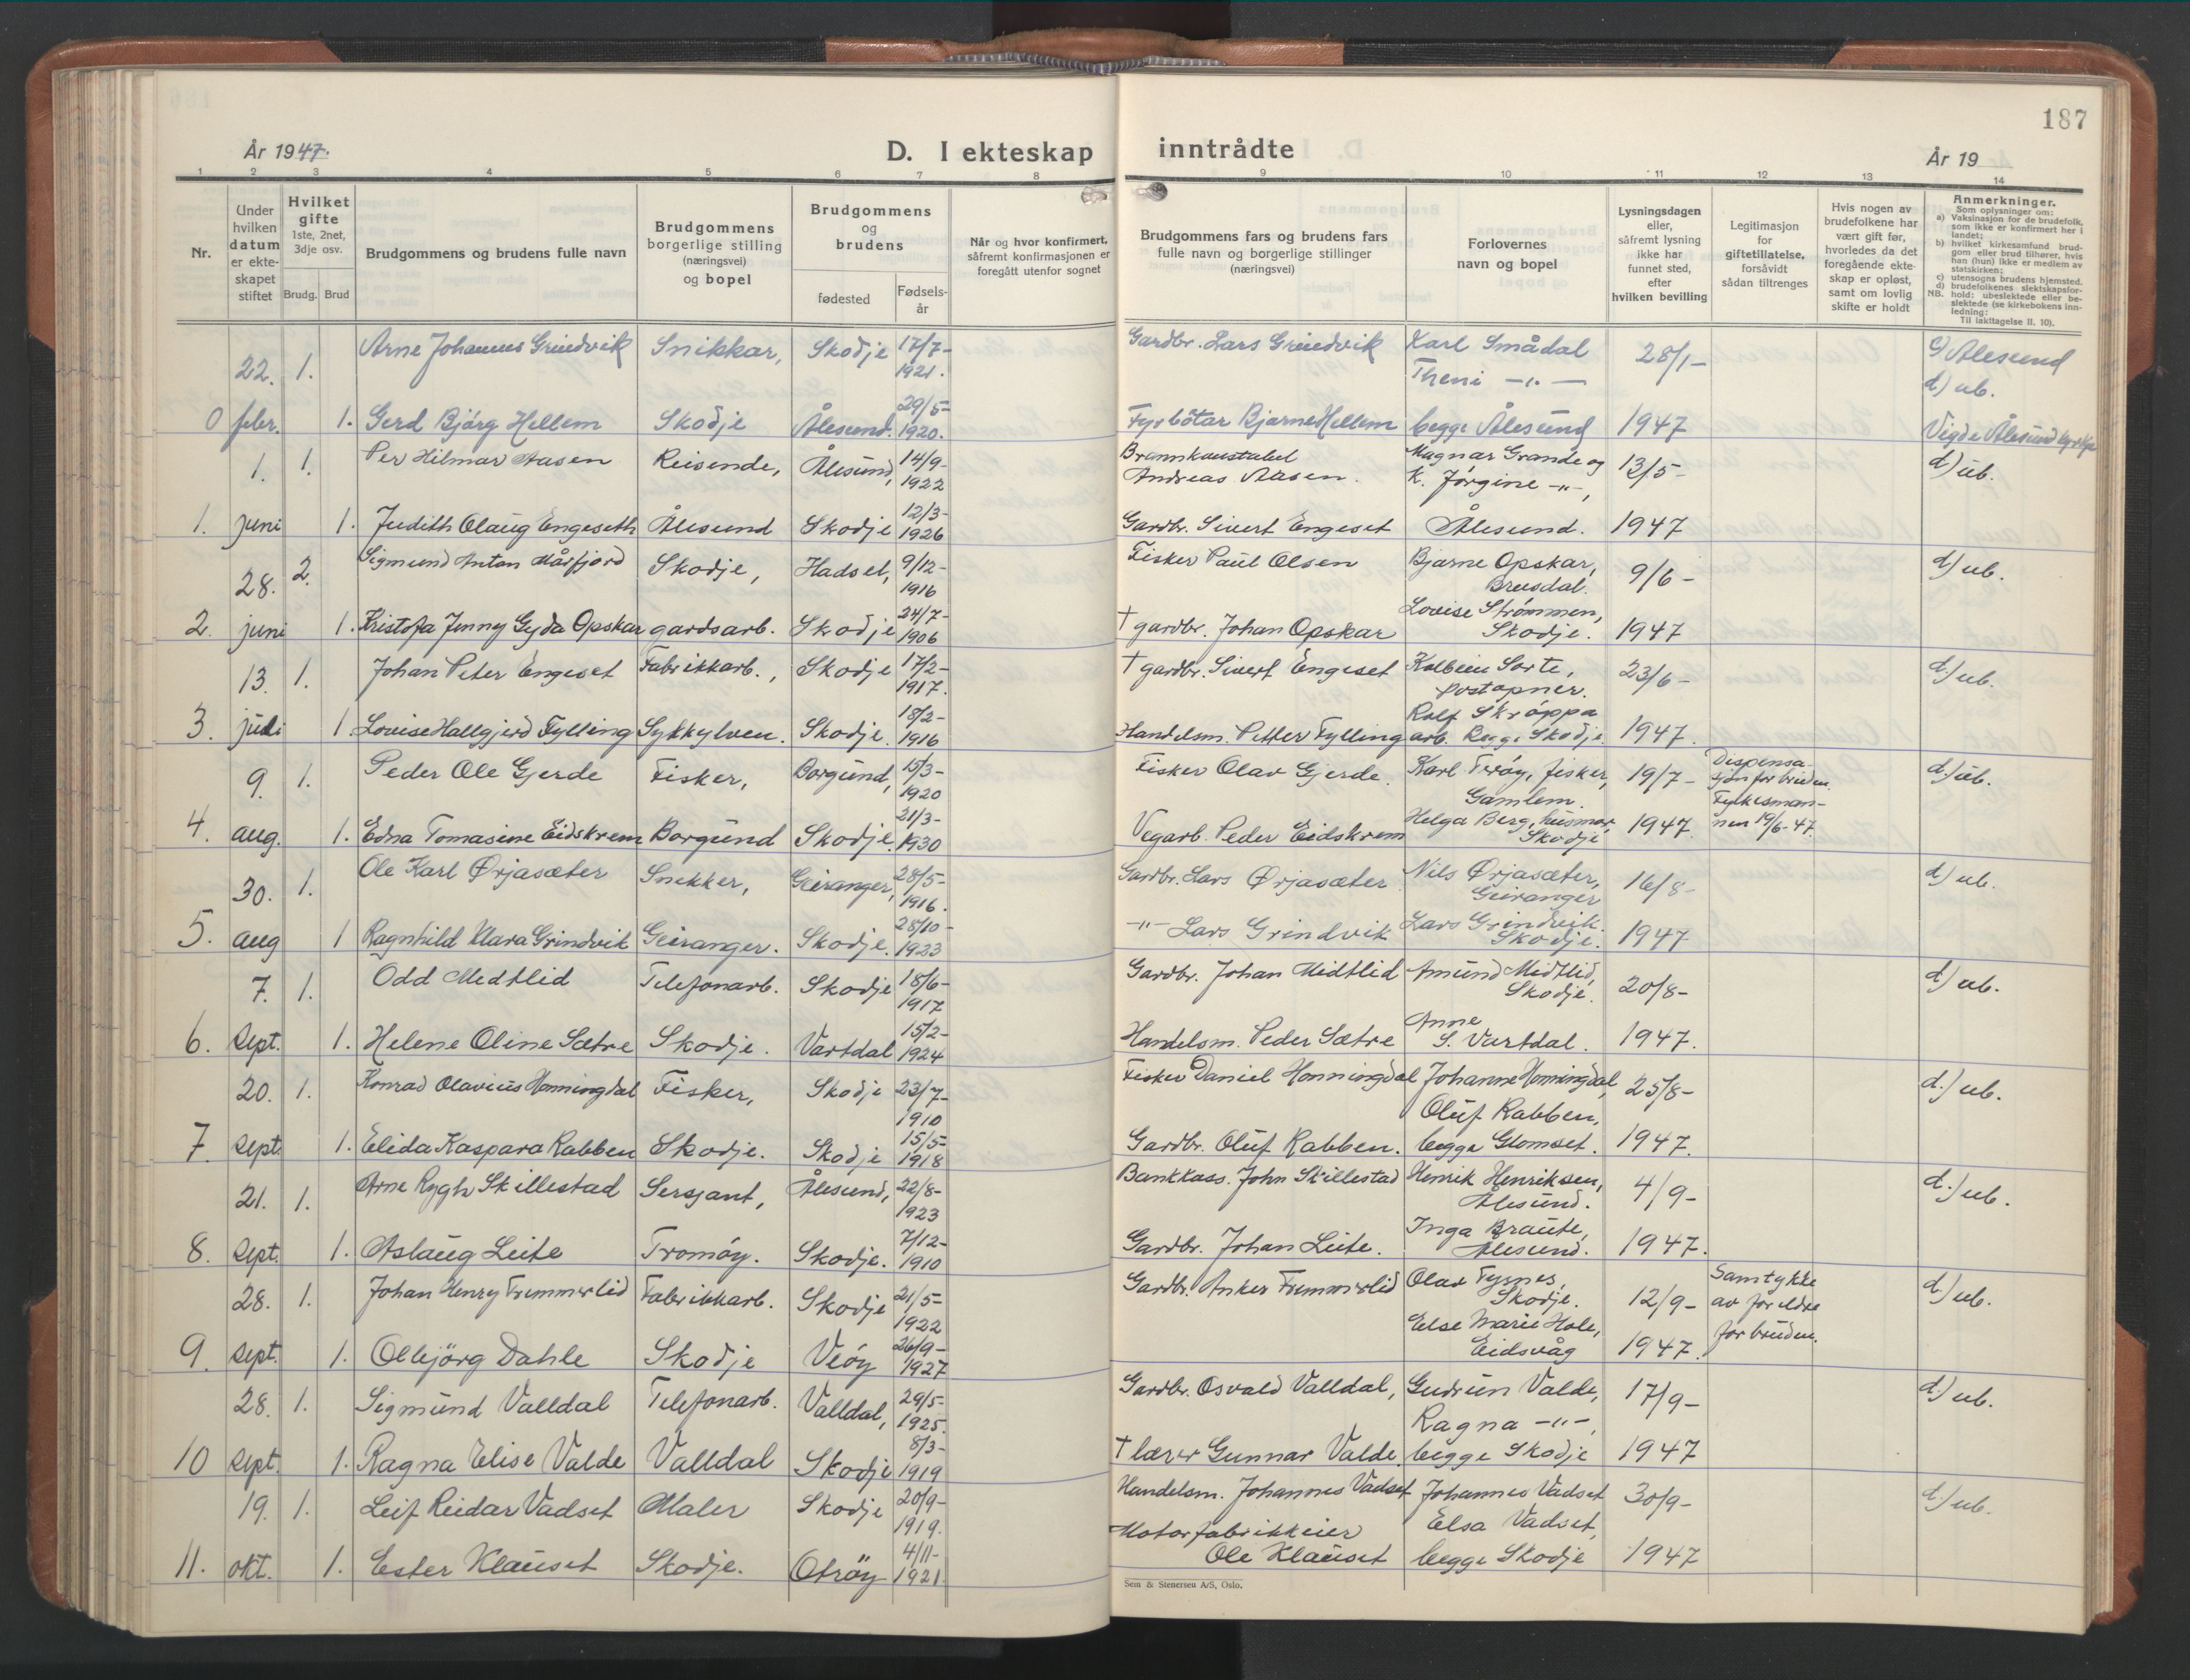 187
År 1947.
D. I ekteskap inntrådte
År 19
1 2 3 4 5 6 7 8 9 10 11 12 13 14
Nr.
Under hvilken datum er ekte-skapet stiftet
Hvilket gifte 1ste, 2net, 3dje osv.
Brudg. Brud
Brudgommens og brudens fulle navn
Brudgommens borgerlige stilling (næringsvei) og bopel
Brudgommens og brudens
fødested
Fødsels-år
Når og hvor konfirmert, såfremt konfirmasjonen er foregått utenfor sognet
Brudgommens fars og brudens fars fulle navn og borgerlige stillinger (næringsvei)
Forlovernes navn og bopel
Lysningsdagen eller, såfremt lysning ikke har funnet sted, efter hvilken bevilling
Legitimasjon for giftetillatelse, forsåvidt sådan tiltrenges
Hvis nogen av brudefolkene har vært gift før, hvorledes da det foregående ekte-skap er opløst, samt om lovlig skifte er holdt
Anmerkninger.
Som oplysninger om:
a) Vaksinasjon for de brudefolk, som ikke er konfirmert her i landet;
b) hvilket kirkesamfund brud-gom eller brud tilhører, hvis han (hun) ikke er medlem av statskirken;
c) utensogns brudens hjemsted.
d) brudefolkenes slektskapsfor-hold: ubeslektede eller be-slektede (se kirkebokens inn-ledning:
NB.
Til iakttagelse II. 10).
22. 1. Arne Johannes Grindvik Snikkar, Skodje 17/7- 1921. Gardbr. Lars Grindvik Karl Smådal Theni -"- 28/1- c) Ålesund d) ub.
0 febr. 1. Gerd Bjørg Hellem Skodje Ålesund. 29/5- 1920. Fyrbötar Bjarne Hellem begge Ålesund 1947 Vigde Ålesund kyrkje
1. 1. Per Hilmar Aasen Reisende, Ålesund, 14/9- 1922 Brannkonstabel Andreas Aasen. Magnar Grande og K. Jørgine -"-, 13/5- d) ub.
1. juni 1. Judith Olaug Engeseth Ålesund Skodje 12/3- 1926 Gardbr. Sivert Engeset Ålesund. 1947
28. 2. Sigmund Anton Mårfjord Skodje, Hadsel, 9/12- 1916 Fisker Paul Olsen Bjarne Opskar, Brusdal. 9/6- d) ub.
2. juni 1. Kristofa Jenny Gyda Opskar gardsarb. Skodje 24/7- 1906 † gardbr. Johan Opskar Lovise Strømmen, Skodje. 1947
13. 1. Johan Peter Engeset Fabrikkarb., Skodje 17/2- 1917. † gardbr. Sivert Engeset Kolbein Sorte, postopner. 23/6- d) ub.
3. juli 1 Lovise Hallgjerd Fylling Sykkylven. Skodje. 18/2- 1916 Handelsm. Petter Fylling Rolf Skroppa arb. Begge Skodje. 1947.
9. 1. Peder Ole Gjerde Fisker, Borgund, 15/3- 1920 Fisker Olav Gjerde. Karl Terøy, fisker, Gamlem. 19/7- Dispensa-sjon for bruden. d.) ub.
4. aug. 1. Edna Tomasine Eidskrem Borgund Skodje. 21/3- 1930 Vegarb. Peder Eidskrem Helga Berg, husmor, Skodje 1947. Fylkesman-nen 19/6-47.
30. 1. Ole Karl Ørjasæter Snekker, Geiranger, 28/5- 1916. Gardbr. Lars Ørjasæter Nils Ørjasæter, Geiranger 16/8- d) ub.
5. aug 1 Ragnhild Klara Grindvik Geiranger. Skodje. 28/10- 1923 -"- Lars Grindvik Lars Grindvik. Skodje. 1947
7. 1. Odd Medtlid Telefonarb. Skodje 18/6- 1917 Gardbr. Johan Midtlid Amund Midtlid, Skodje. 20/8- d) ub.
6. sept. 1. Helene Oline Sætre Skodje. Vartdal 15/2- 1924 Handelsm. Peder Sætre Anne S. Vartdal. 1947.
20. 1. Konrad Olavius Honningdal Fisker, Skodje 23/7- 1910 Fisker Daniel Honningdal Johanne Honningdal, 25/8- d.) ub.
7. sept. 1. Elida Kaspara Rabben Skodje. Skodje 15/5- 1918 Gardbr. Oluf Rabben. Oluf Rabben, begge Glomset. 1947.
21. 1. Arne Rygh Skillestad Sersjant, Ålesund, 22/8- 1923 Bankkass. John Skillestad Henrik Henriksen, Ålesund. 4/9- d.) ub.
8. sept. 1. Aslaug Leite Tromøy. Skodje. 7/12- 1910 Gardbr. Johan Leite. Inga Braute, Ålesund. 1947.
28. 1. Johan Henry Fremmerlid Fabrikkarb. Skodje 21/5- 1922 Gardbr. Anker Fremmerlid Olav Fyrnes, Skodje. 12/9- Samtykke av foreldre for bruden. d.) ub.
9. sept. 1. Ollbjörg Dahle Skodje Veøy 26/9- 1927 Else Marie Hole, Eidsvåg 1947.
28. 1. Sigmund Valldal Telefonarb. Valldal, 29/5- 1925. Gardbr. Osvald Valldal, Gudrun Valde, Ragna -"-, 17/9- d.) ub.
10 sept. 1. Ragna Elise Valde Valldal Skodje 8/3- 1919 † lærer Gunnar Valde. begge Skodje 1947
19. 1. Leif Reidar Vadset Maler Skodje 20/9- 1919. Handelsm. Johannes Vadset Johannes Vadset 30/9- d.) ub.
11. okt. 1. Ester Klauset Skodje. Otrøy 4/11- 1921. Motorfabrikkeier Ole Klauset Elsa Vadset, begge Skodje 1947
Sem & Stenersen A/S, Oslo.